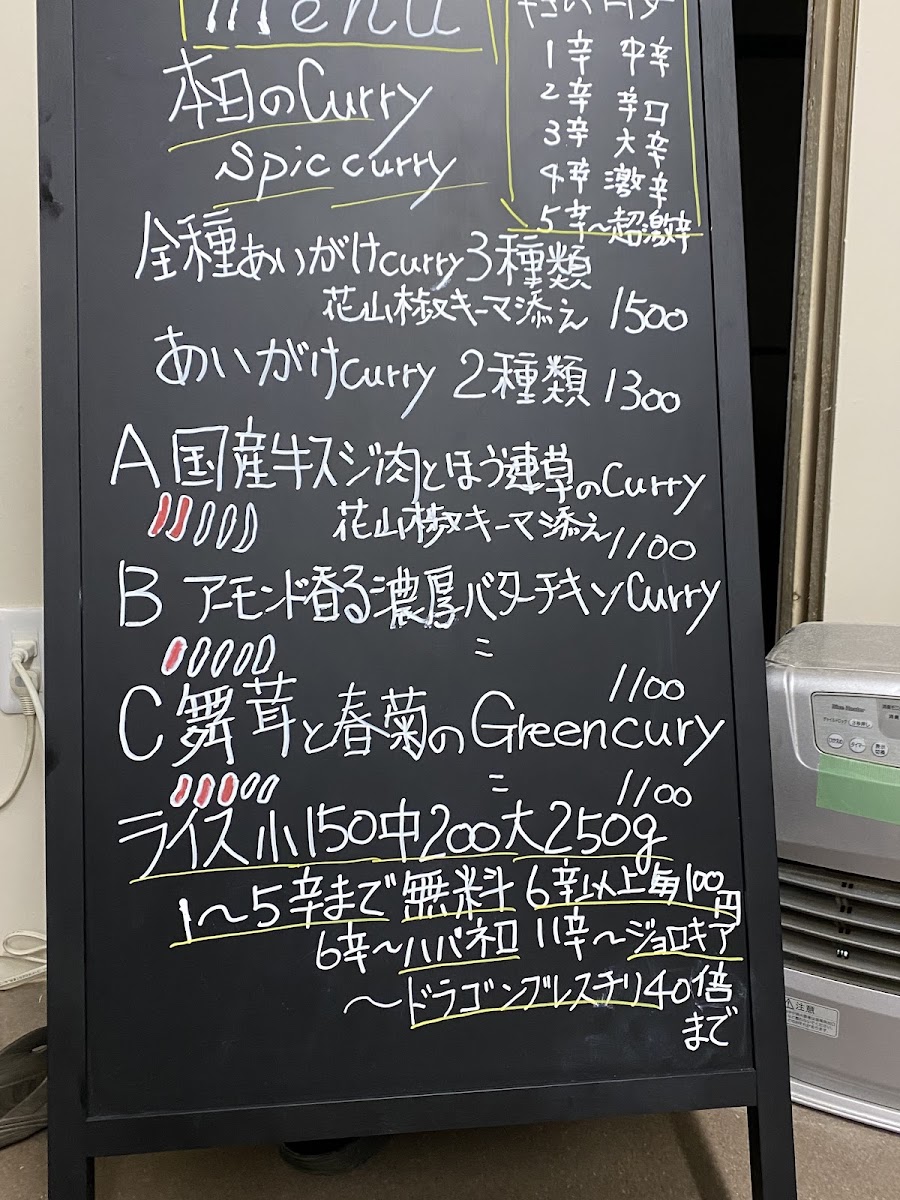 menu
1辛 中辛
2辛 辛口
3辛 大辛
4辛 激辛
5辛~超激辛
本田のCurry
Spic curry
全種あいがけcurry3種類
花山椒キーマ添え 1500
あいがけcurry 2種類 1300
A国産牛スジ肉とほうれん草のCurry
花山椒キーマ添え 1100
B アーモンド香る濃厚バターチキンCurry
〃 1100
C舞茸と春菊のGreencury
〃 1100
ライス小150中200大250g
1〜5辛まで無料 6辛以上毎100円
6辛〜ハバネロ 11辛〜ジョロキア
〜ドラゴンブレスチリ40倍
まで
注意